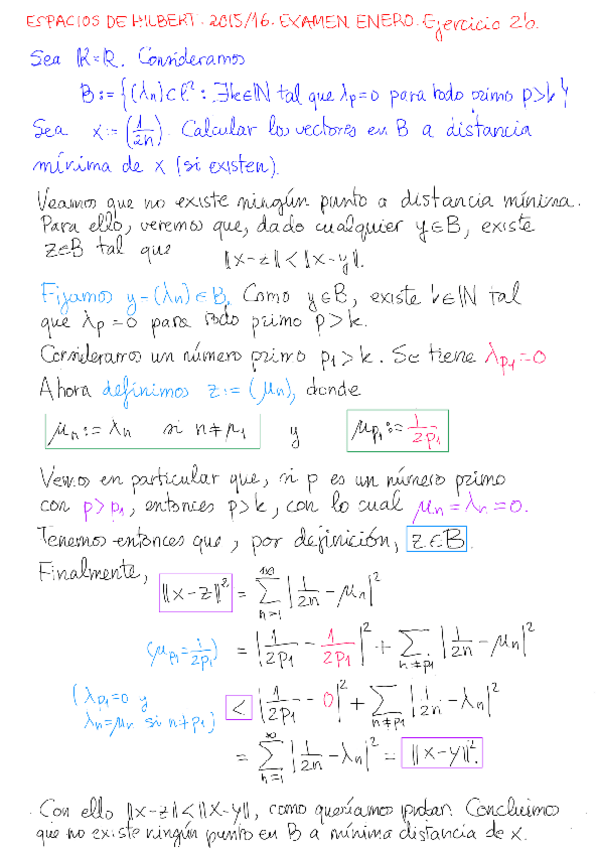 ESPACIOS DE HILBERT. 2015/16. EXAMEN ENERO. Ejercicio 2b.
Sea K=R. Consideramos
B:={(λn)⊂ℓ²: ∃k∈N tal que λp=0 para todo primo p>k}
Sea x:=(1/2n). Calcular los vectores en B a distancia
mínima de x (si existen).
Veamos que no existe ningún punto a distancia mínima.
Para ello, veremos que, dado cualquier y∈B, existe
z∈B tal que ||x-z||<||x-y||.
Fijamos y=(λn)∈B. Como y∈B, existe k∈N tal
que λp=0 para todo primo p>k.
Consideramos un número primo p1>k. Se tiene λp1=0
Ahora definimos z:=(μn), donde
μn:=λn si n≠p1 y μp1:=1/2p1
Vemos en particular que, si p es un número primo
con p>p1, entonces p>k, con lo cual μn=λn=0.
Tenemos entonces que, por definición, z∈B.
Finalmente,
||x-z||² = ∑_{n=1}^∞ |1/2n - μn|²
(μp1=1/2p1) = |1/2p1 - 1/2p1|² + ∑_{n≠p1} |1/2n - μn|²
(λp1=0 y
λn=μn si n≠p1) < |1/2p1 - 0|² + ∑_{n≠p1} |1/2n - λn|²
= ∑_{n=1}^∞ |1/2n - λn|² = ||x-y||².
Con ello ||x-z||<||x-y||, como queríamos probar. Concluimos
que no existe ningún punto en B a mínima distancia de x.